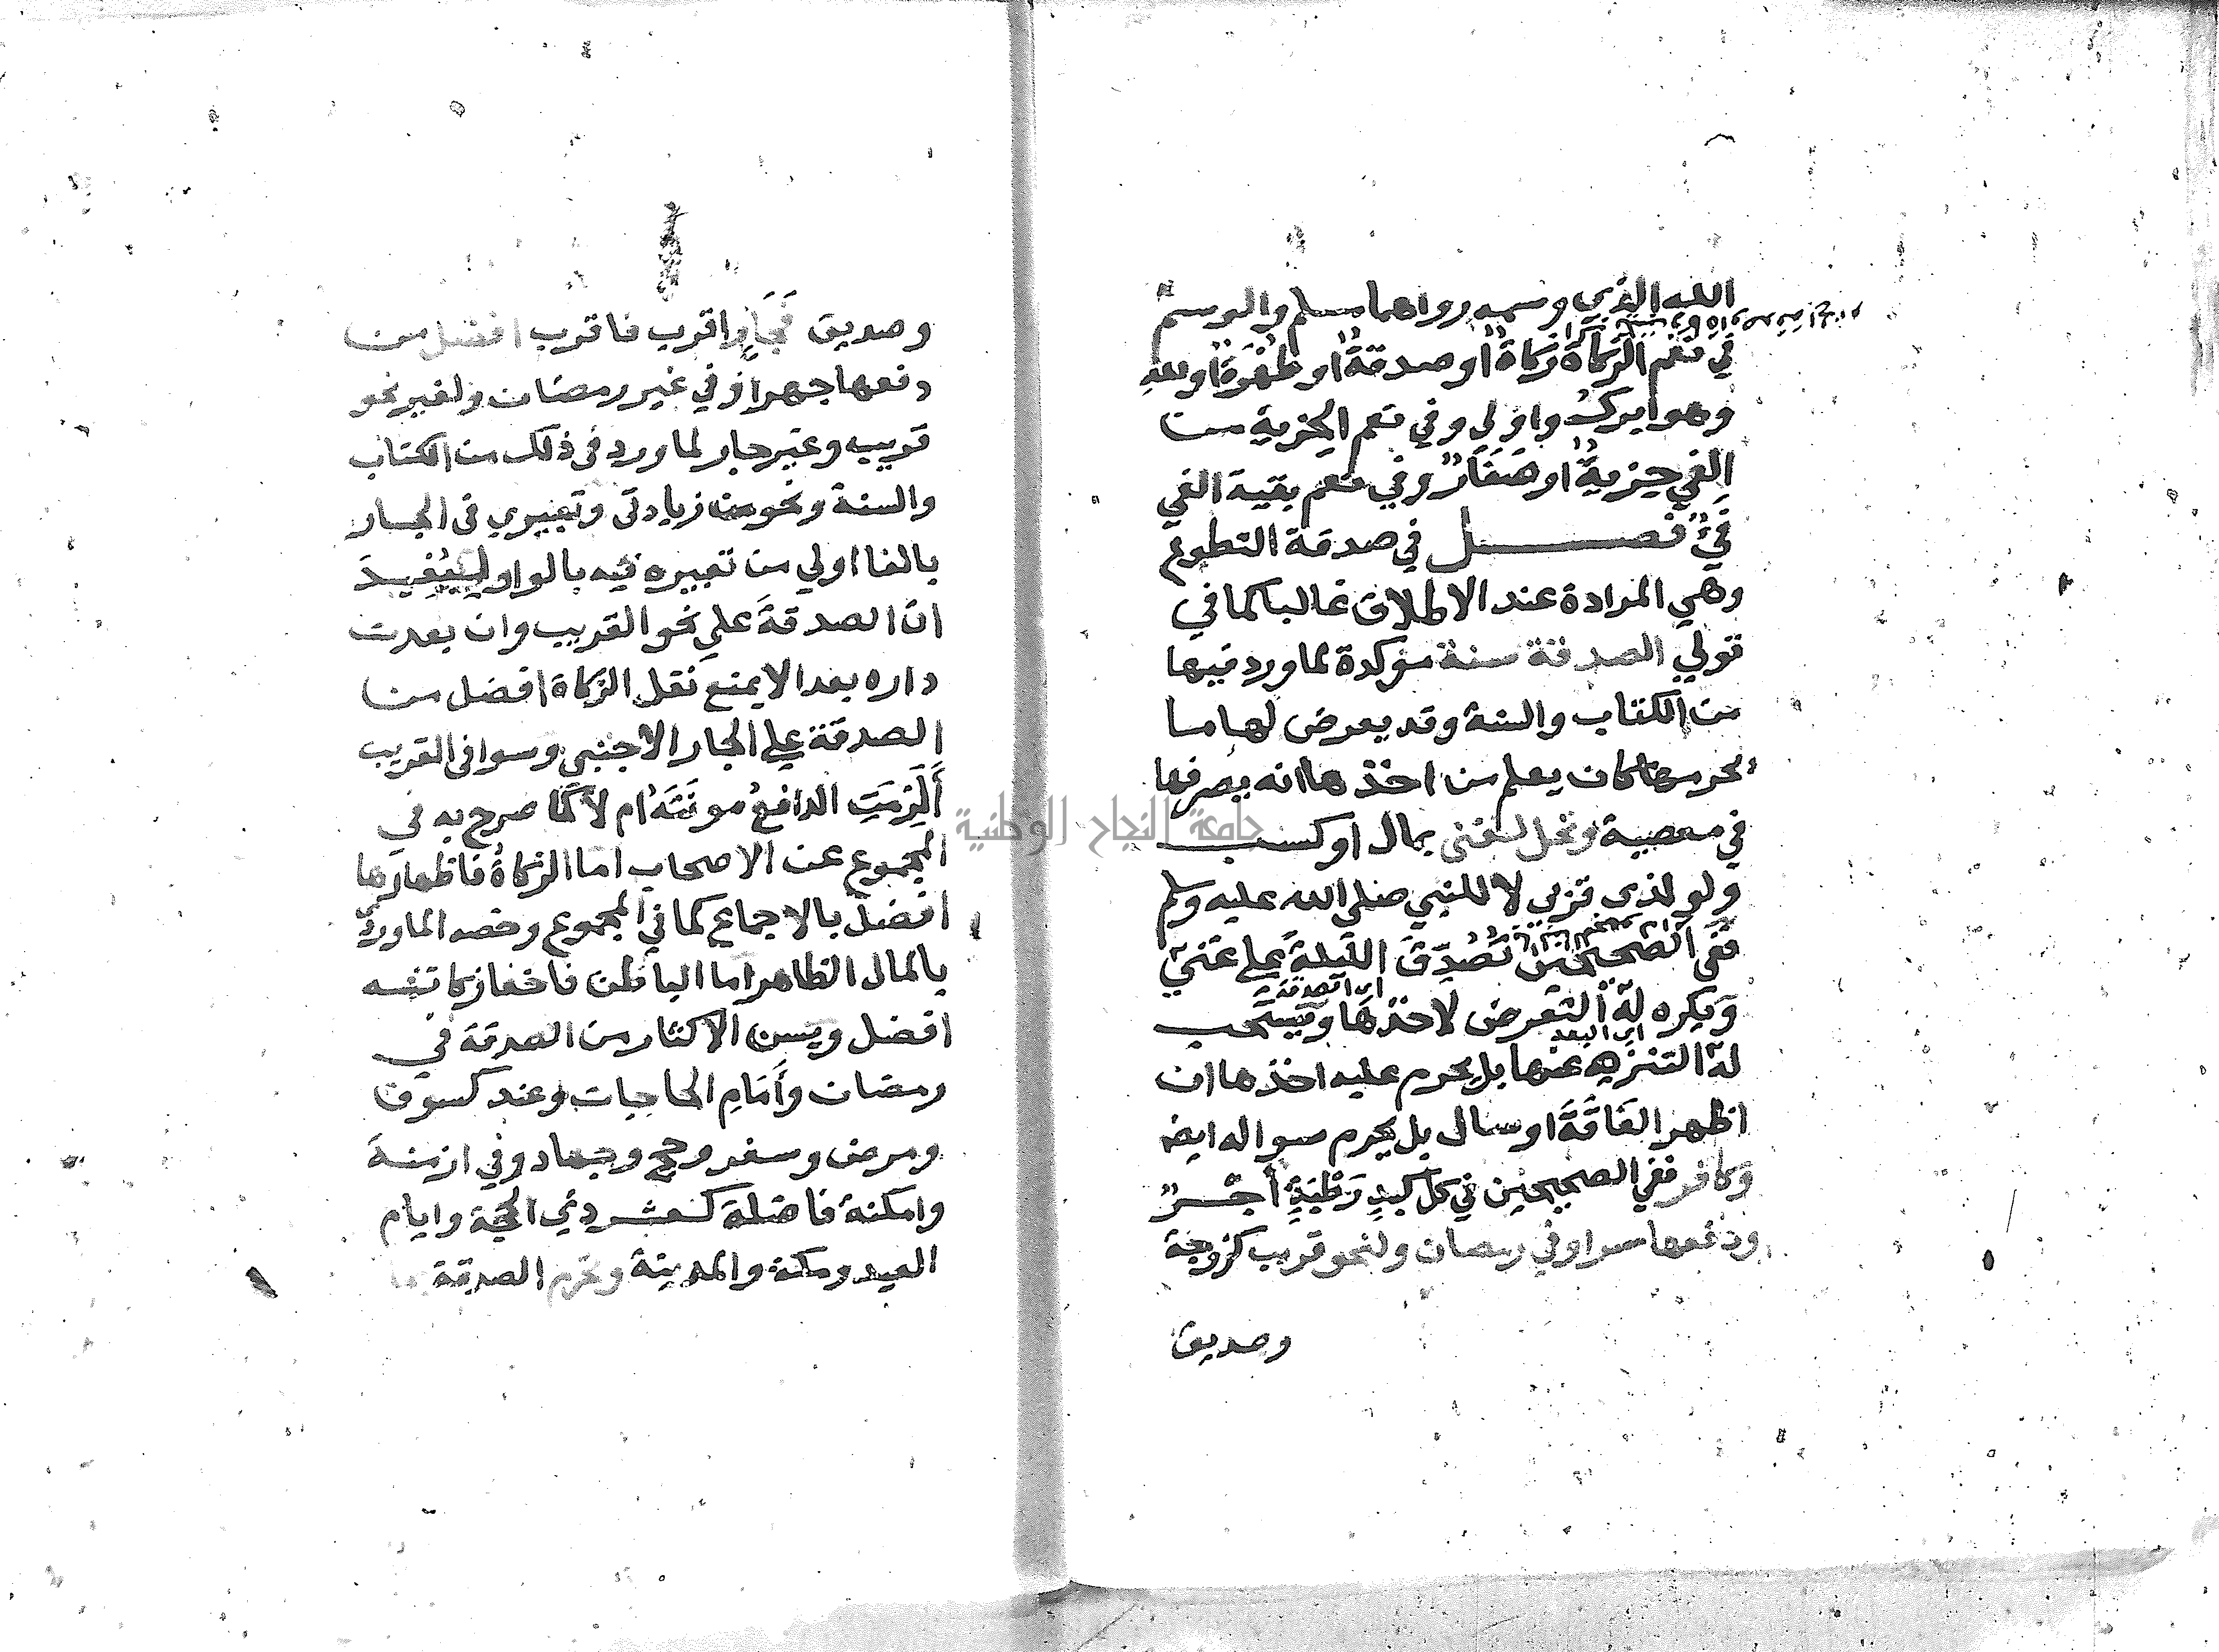 الله الذي وسمه رواهما مسلم والوسم
في نعم الزكاة زكاة او صدقة او طهرة او لله
وهو ابرك واولي وفي نعم الجزية من
الفي جزية او صغار وفي نعم بقية الفي
فيء فصل في صدقة التطوع
وهي المرادة عند الاطلاق غالبا كما في
قولي الصدقة سنة مؤكدة لما ورد فيها
من الكتاب والسنة وقد يعرض لها ما
يحرمها كان يعلم من اخذها انه يصرفها
في معصية وتحل لغني بمال او كسب
ولو لذي قربي لا للنبي صلي الله عليه وسلم
ففي الصحيحين تُصُدِّقَ الليلةَ علي غني
اي الصدقة
ويكره له التعرض لاخذها ويستحب
له التنزه عنها بل يحرم عليه اخذها ان
اظهر الفاقة او سال بل يحرم سواله ايض
وكافر ففي الصحيحين في كل كبد رطبة أجر
ودفعها سرا وفي رمضان ولنحو قريب كزوجة
وصديق
وصديق فجار اقرب فاقرب افضل من
دفعها جهرا وفي غير رمضان ولغير نحو
قريبه وغير جار لما ورد في ذلك من الكتاب
والسنة ونحو من زيادتي وتعبيري في الجار
بالفا اولي من تعبيره فيه بالواو ليُفيد
ان الصدقة علي نحو القريب وان بعدت
داره بعدا لا يمنع نقل الزكاة افضل من
الصدقة علي الجار الاجنبي وسوا في القريب
أَلَزِمَتِ الدافعَ مونتُه ام لا كما صرح به في
المجموع عن الاصحاب اما الزكاة فاظهارها
افضل بالاجماع كما في المجموع وخصه الماوردي
بالمال الظاهر اما الباطن فاخفا زكاته
افضل ويسن الاكثار من الصدقة في
رمضان وأمام الحاجات وعند كسوف
ومرض وسفر وحج وجهاد وفي ازمنة
وامكنة فاضلة كعشر ذي الحجة وايام
العيد ومكة والمدينة وتحرم الصدقة بما
جامعة النجاح الوطنية